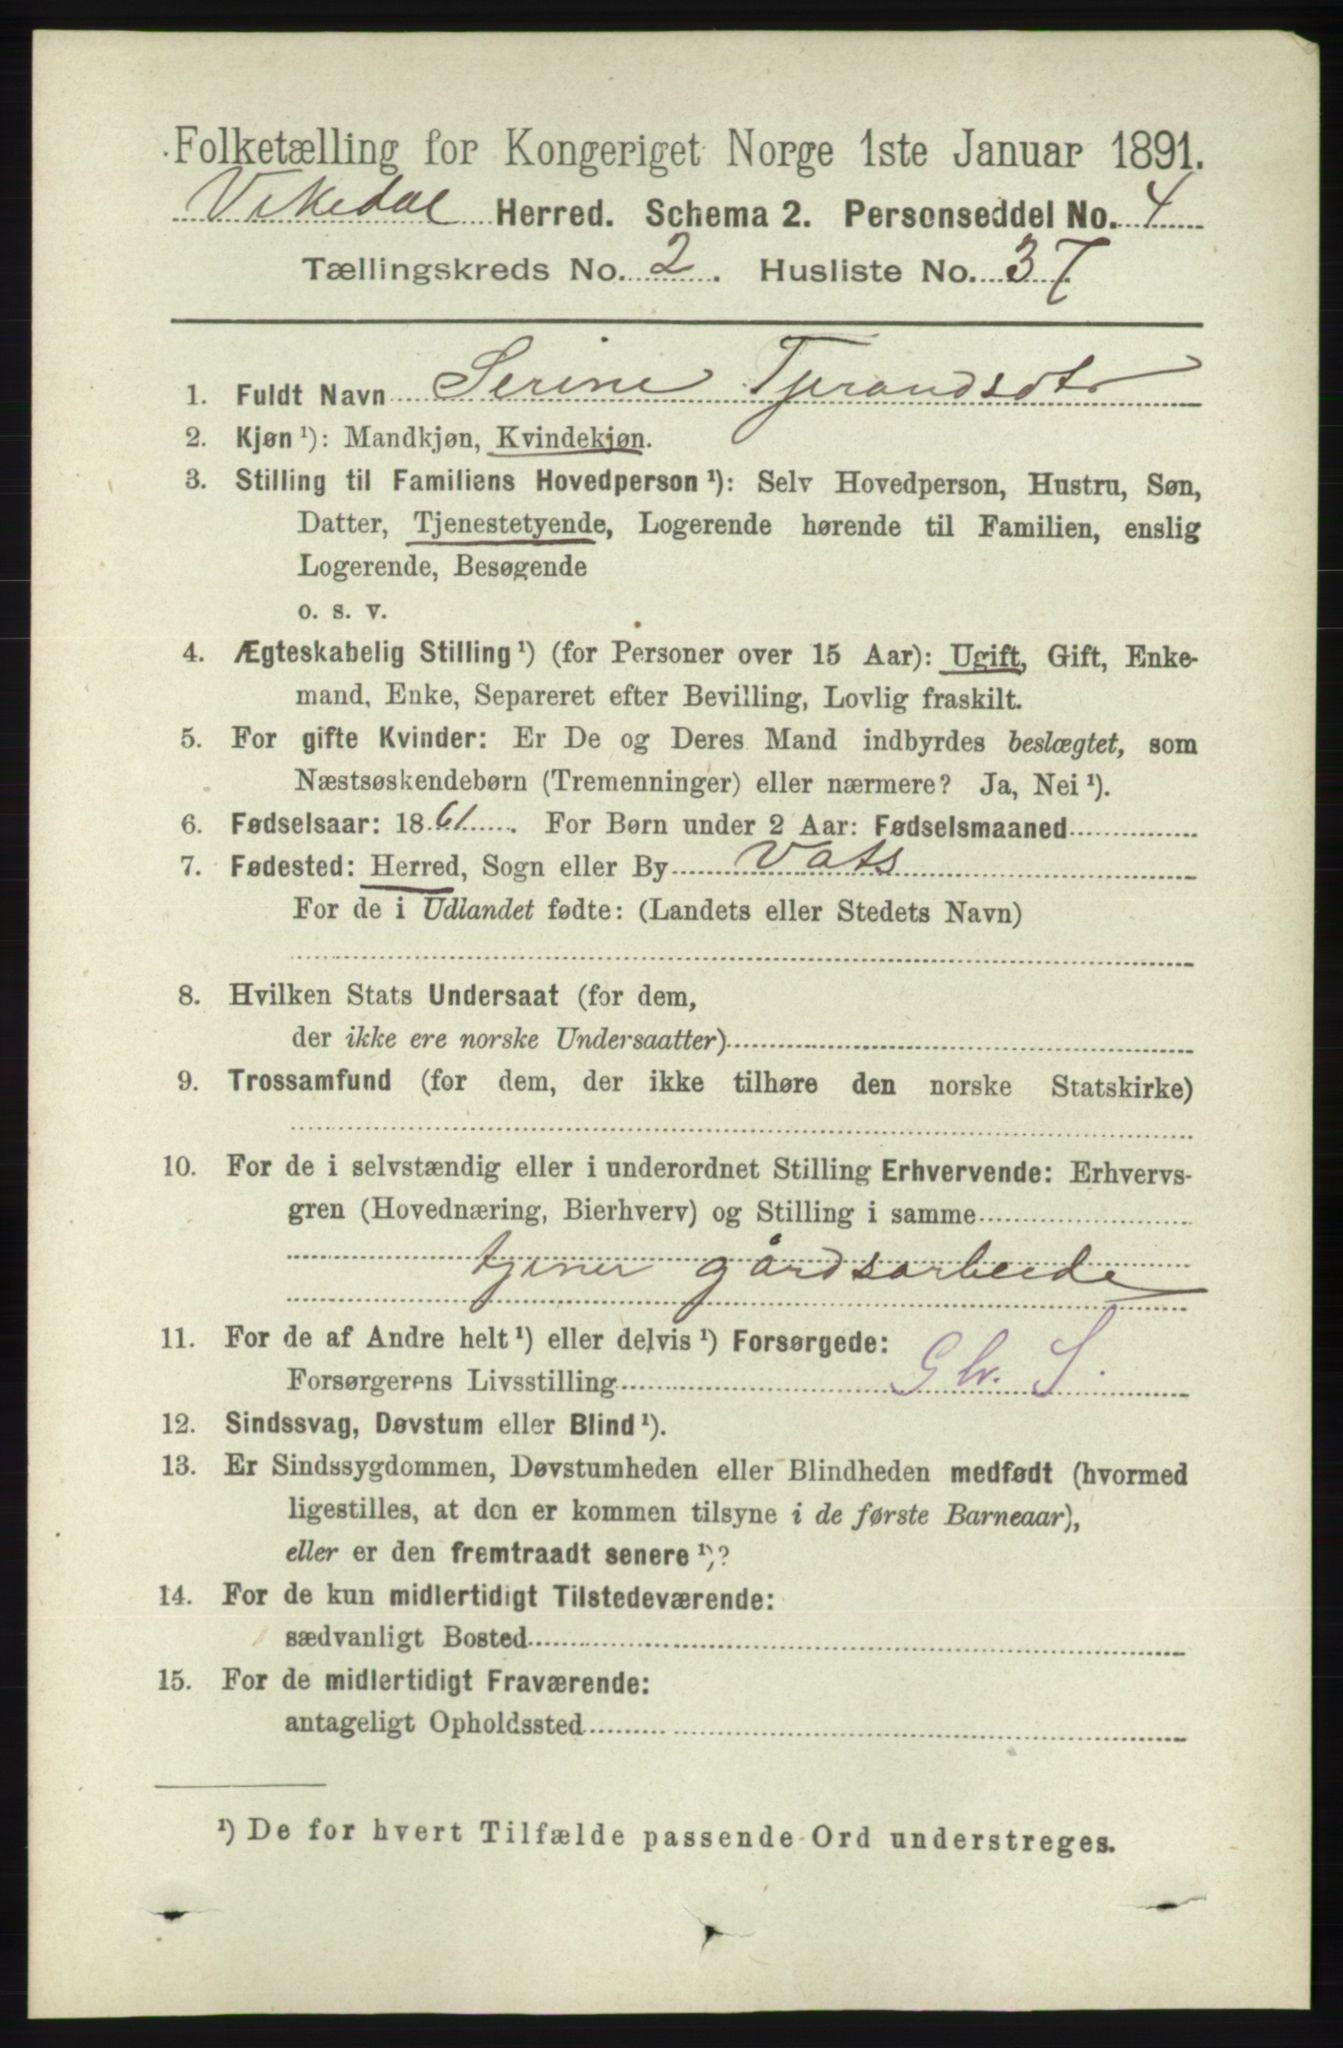 Folketælling for Kongeriget Norge 1ste Januar 1891.
Vikedal Herred. Schema 2. Personseddel No. 4
Tællingskreds No. 2. Husliste No. 37
1. Fuldt Navn Serine Tjerandsdtr
2. Kjøn ¹): Mandkjøn, Kvindekjøn.
3. Stilling til Familiens Hovedperson ¹): Selv Hovedperson, Hustru, Søn,
Datter, Tjenestetyende, Logerende hørende til Familien, enslig
Logerende, Besøgende
o. s. v.
4. Ægteskabelig Stilling ¹) (for Personer over 15 Aar): Ugift, Gift, Enke-
mand, Enke, Separeret efter Bevilling, Lovlig fraskilt.
5. For gifte Kvinder: Er De og Deres Mand indbyrdes beslægtet, som
Næstsøskendebørn (Tremenninger) eller nærmere? Ja, Nei ¹).
6. Fødselsaar: 1861. For Børn under 2 Aar: Fødselsmaaned
7. Fødested: Herred, Sogn eller By Vats
For de i Udlandet fødte: (Landets eller Stedets Navn)
8. Hvilken Stats Undersaat (for dem,
der ikke ere norske Undersaatter)
9. Trossamfund (for dem, der ikke tilhøre den norske Statskirke)
10. For de i selvstændig eller i underordnet Stilling Erhvervende: Erhvervs-
gren (Hovednæring, Bierhverv) og Stilling i samme
tjener gårdsarbeide
11. For de af Andre helt ¹) eller delvis ¹) Forsørgede:
Forsørgerens Livsstilling S.
12. Sindssvag, Døvstum eller Blind ¹).
13. Er Sindssygdommen, Døvstumheden eller Blindheden medfødt (hvormed
ligestilles, at den er kommen tilsyne i de første Barneaar),
eller er den fremtraadt senere ¹)?
14. For de kun midlertidigt Tilstedeværende:
sædvanligt Bosted
15. For de midlertidigt Fraværende:
antageligt Opholdssted
¹) De for hvert Tilfælde passende Ord understreges.